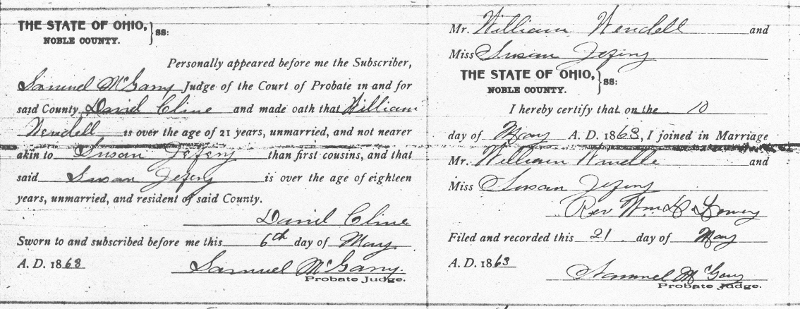 THE STATE OF OHIO, } ss:
NOBLE COUNTY.
Personally appeared before me the Subscriber,
Samuel McGarry Judge of the Court of Probate in and for
said County David Cline and made oath that William
Wendell is over the age of 21 years, unmarried, and not nearer
akin to Susan Jefery than first cousins, and that
said Susan Jefery is over the age of eighteen
years, unmarried, and resident of said County.
David Cline
Sworn to and subscribed before me this 6th day of May
A. D. 1863 Samuel McGarry.
Probate Judge.
Mr. William Wendell and
Miss Susan Jefery
THE STATE OF OHIO, } ss:
NOBLE COUNTY.
I hereby certify that on the 10
day of May A. D. 1863, I joined in Marriage
Mr. William and
Miss Susan Jefery
Rev Wm
Filed and recorded this 21 day of May
A. D. 1863 Samuel McGarry
Probate Judge.